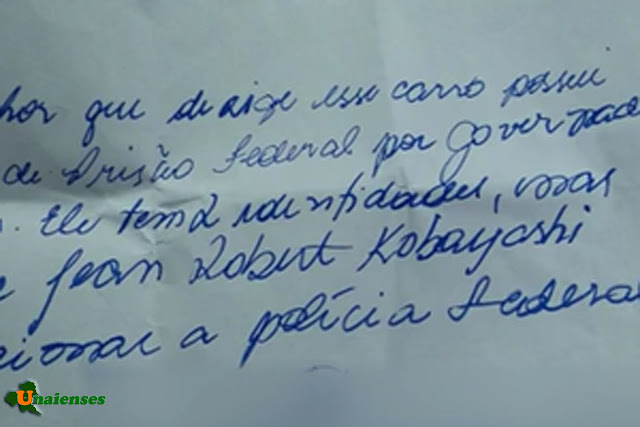 hor que dirige esse carro possui
de Prisão Federal por Governad
. Ele tem 2 identidades, mas
e Jean Robert Kobayashi
cionar a polícia Federal
Unaienses